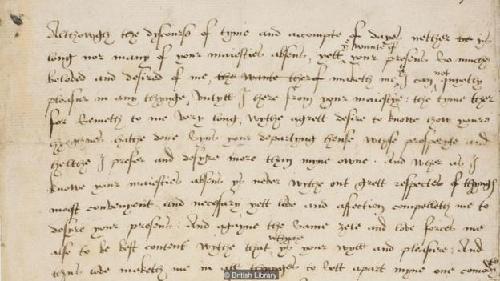 Althowgth the dyscours of tyme and accompte of dayes neither ys
long nor many of your maiesties absens, yett ye wante of your presens so muche
beloved and desired of me, maketh me yt I can not quyetly
pleasur in any thynge, untyll I here from your maiestye. the tyme ther
for semeth to me very long, wythe a grett desire to knowe how your
hyghnes hathe done syns your departyng hense, whose prosperyte and
helthe I prefer and desyre more than myne owne. And wher as I
knowe your maiesties absens ys never wythe out grett respectes of thyngs
most convenyent and necessary yett love and affection compelleth me to
desyre your presens. And agayne the same zele and love forces me
also to be best content wythe that whyche ys your wyll and pleasure. And
thus love maketh me in all thynges to sett apart myne one
© British Library